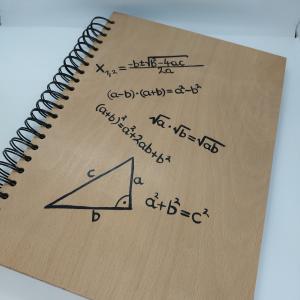 x₁,₂ = -b±√b²-4ac / 2a
(a-b)·(a+b)=a²-b²
√a·√b=√ab
(a+b)²=a²+2ab+b²
c
a
b
a²+b²=c²